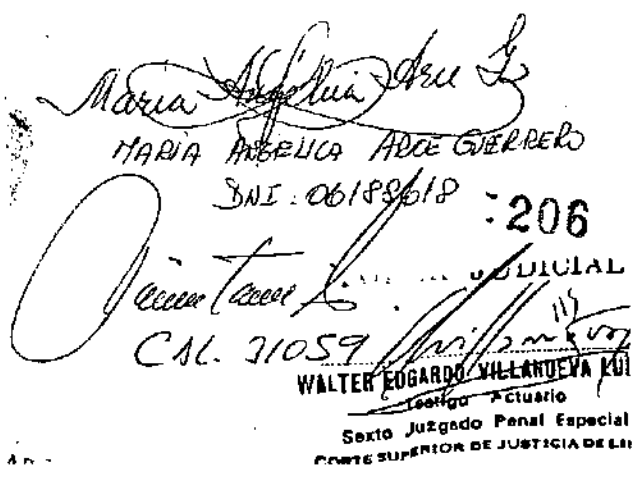 Maria Angélica Arce G
MARIA ANGELICA ARCE GUERRERO
DNI: 06188618
:206
JUDICIAL
CAL. 31059
WALTER EDGARDO VILLANUEVA LUI
Testigo Actuario
Sexto Juzgado Penal Especial
CORTE SUPERIOR DE JUSTICIA DE LI